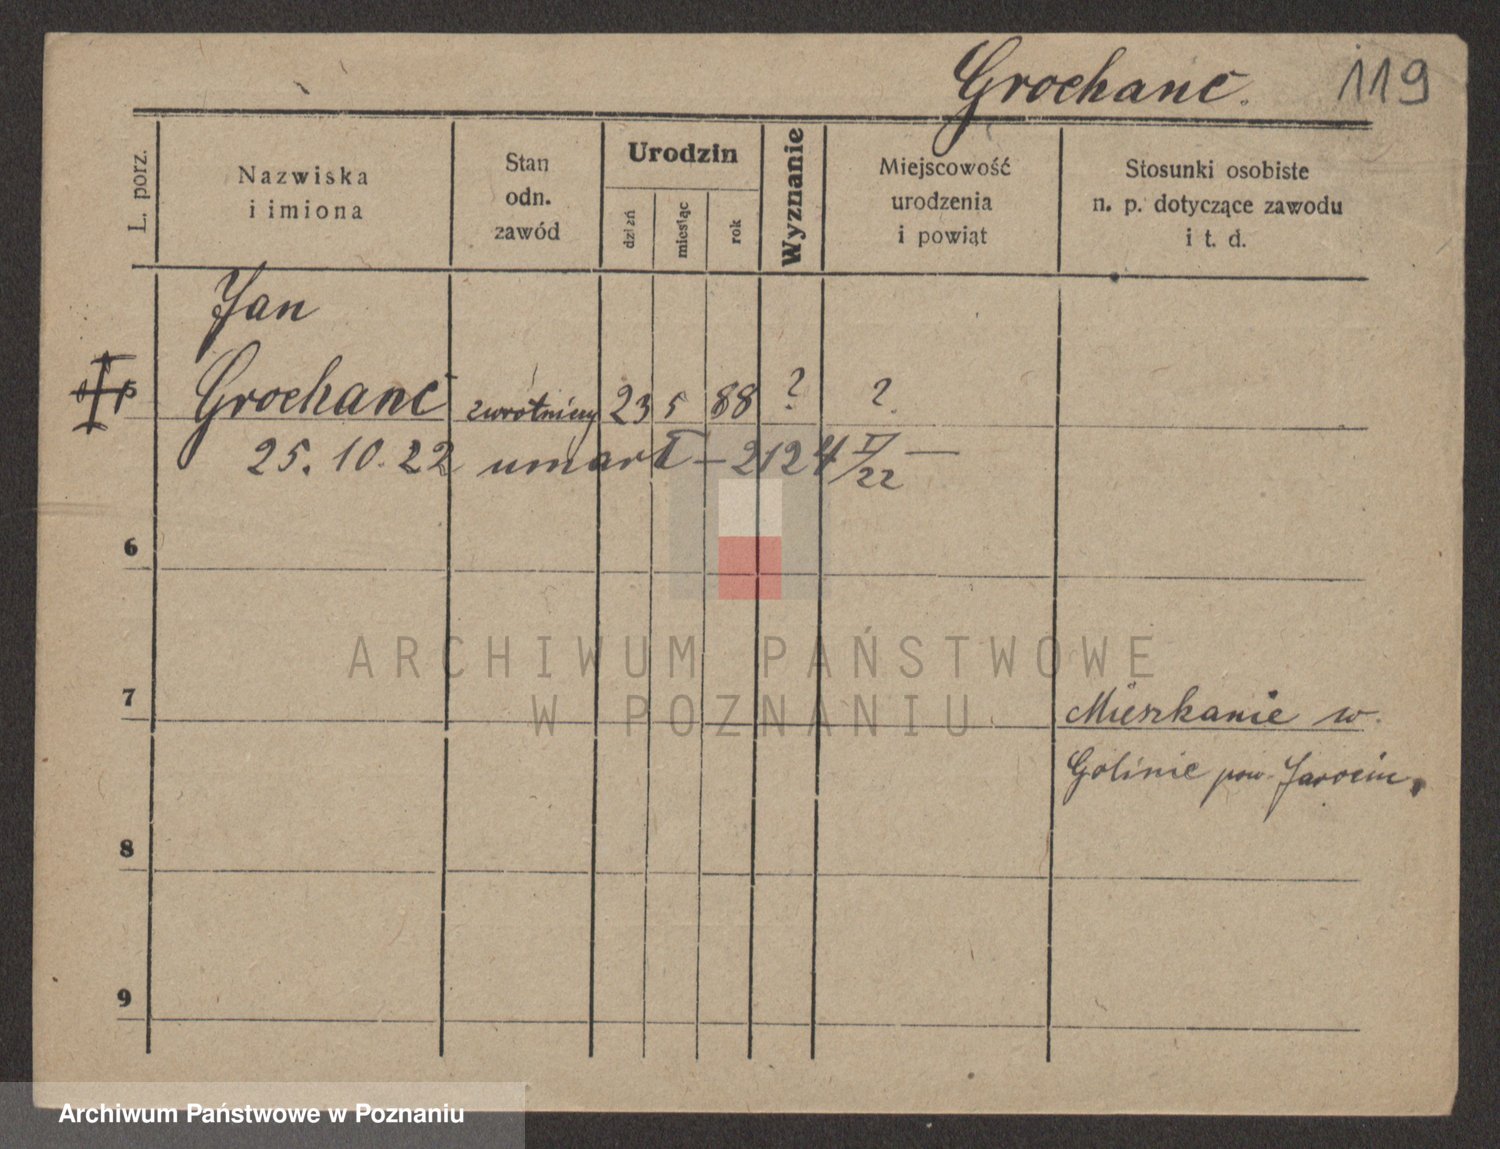 Grochanć. 119
L. porz.
Nazwiska
i imiona
Stan
odn.
zawód
Urodzin
dzień
miesiąc
rok
Wyznanie
Miejscowość
urodzenia
i powiąt
Stosunki osobiste
n. p. dotyczące zawodu
i t. d.
Jan
5 Grochanć zwrotniczy 23 5 88 ? ?
25. 10. 22 umarł – 2124 I/22 —
6
7 Mieszkanie w
Golinie pow. Jarocin.
8
9
ARCHIWUM PAŃSTWOWE
W POZNANIU
Archiwum Państwowe w Poznaniu